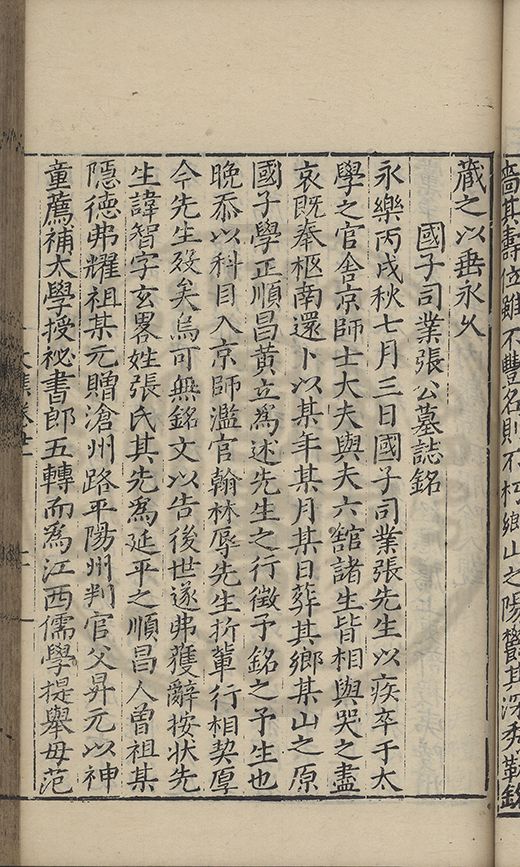 嗇其壽位雖不豐名則不朽鄉山之陽鬱其深秀勒銘
藏之以垂永久
國子司業張公墓誌銘
永樂丙戌秋七月三日國子司業張先生以疾卒于太
學之官舍京師士大夫與夫六館諸生皆相與哭之盡
哀既奉柩南還卜以某年某月某日葬其鄉某山之原
國子學正順昌黃立為述先生之行徵予銘之予生也
晚忝以科目入京師濫官翰林辱先生折輩行相契厚
今先生歿矣烏可無銘文以告後世遂弗獲辭按狀先
生諱智字玄畧姓張氏其先為延平之順昌人曾祖某
隱德弗耀祖某元贈滄州路平陽州判官父昇元以神
童薦補太學授祕書郎五轉而為江西儒學提舉母范
文集卷廿